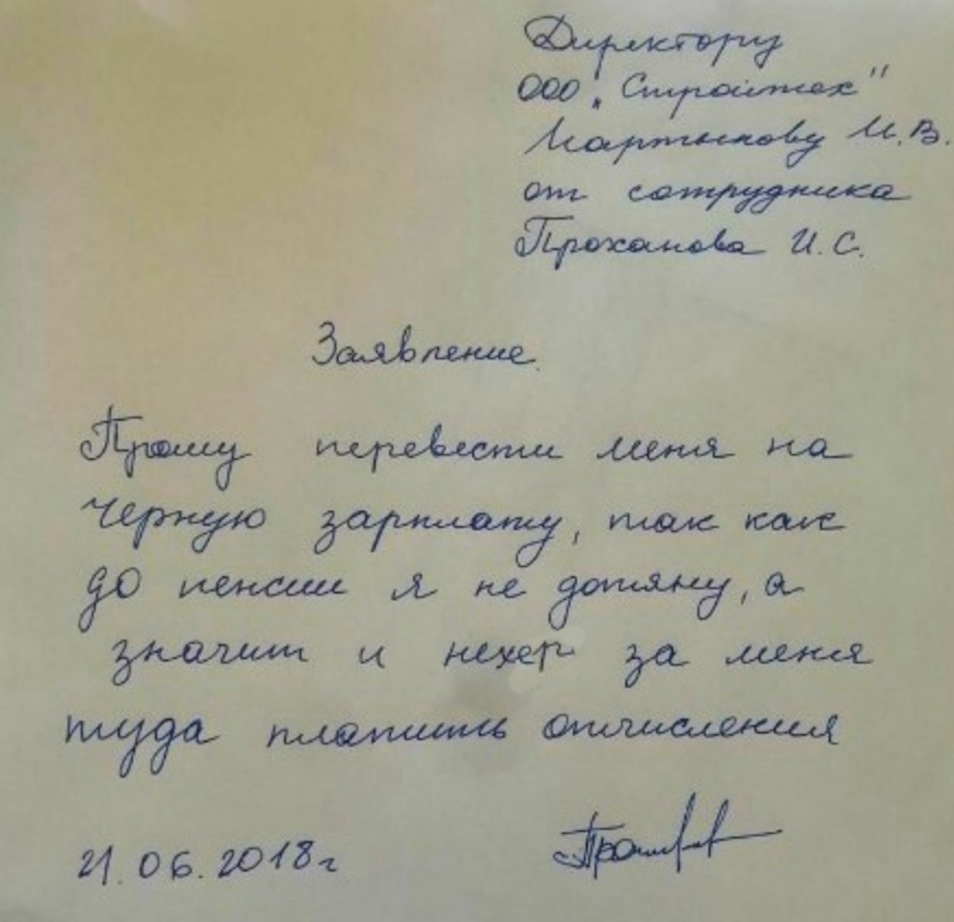 Директору
ООО "Строймех"
Мартынову И.В.
от сотрудника
Проханова И.С.
Заявление.
Прошу перевести меня на
черную зарплату, так как
до пенсии я не дотяну, а
значит и нехер за меня
туда платить отчисления
21.06.2018г